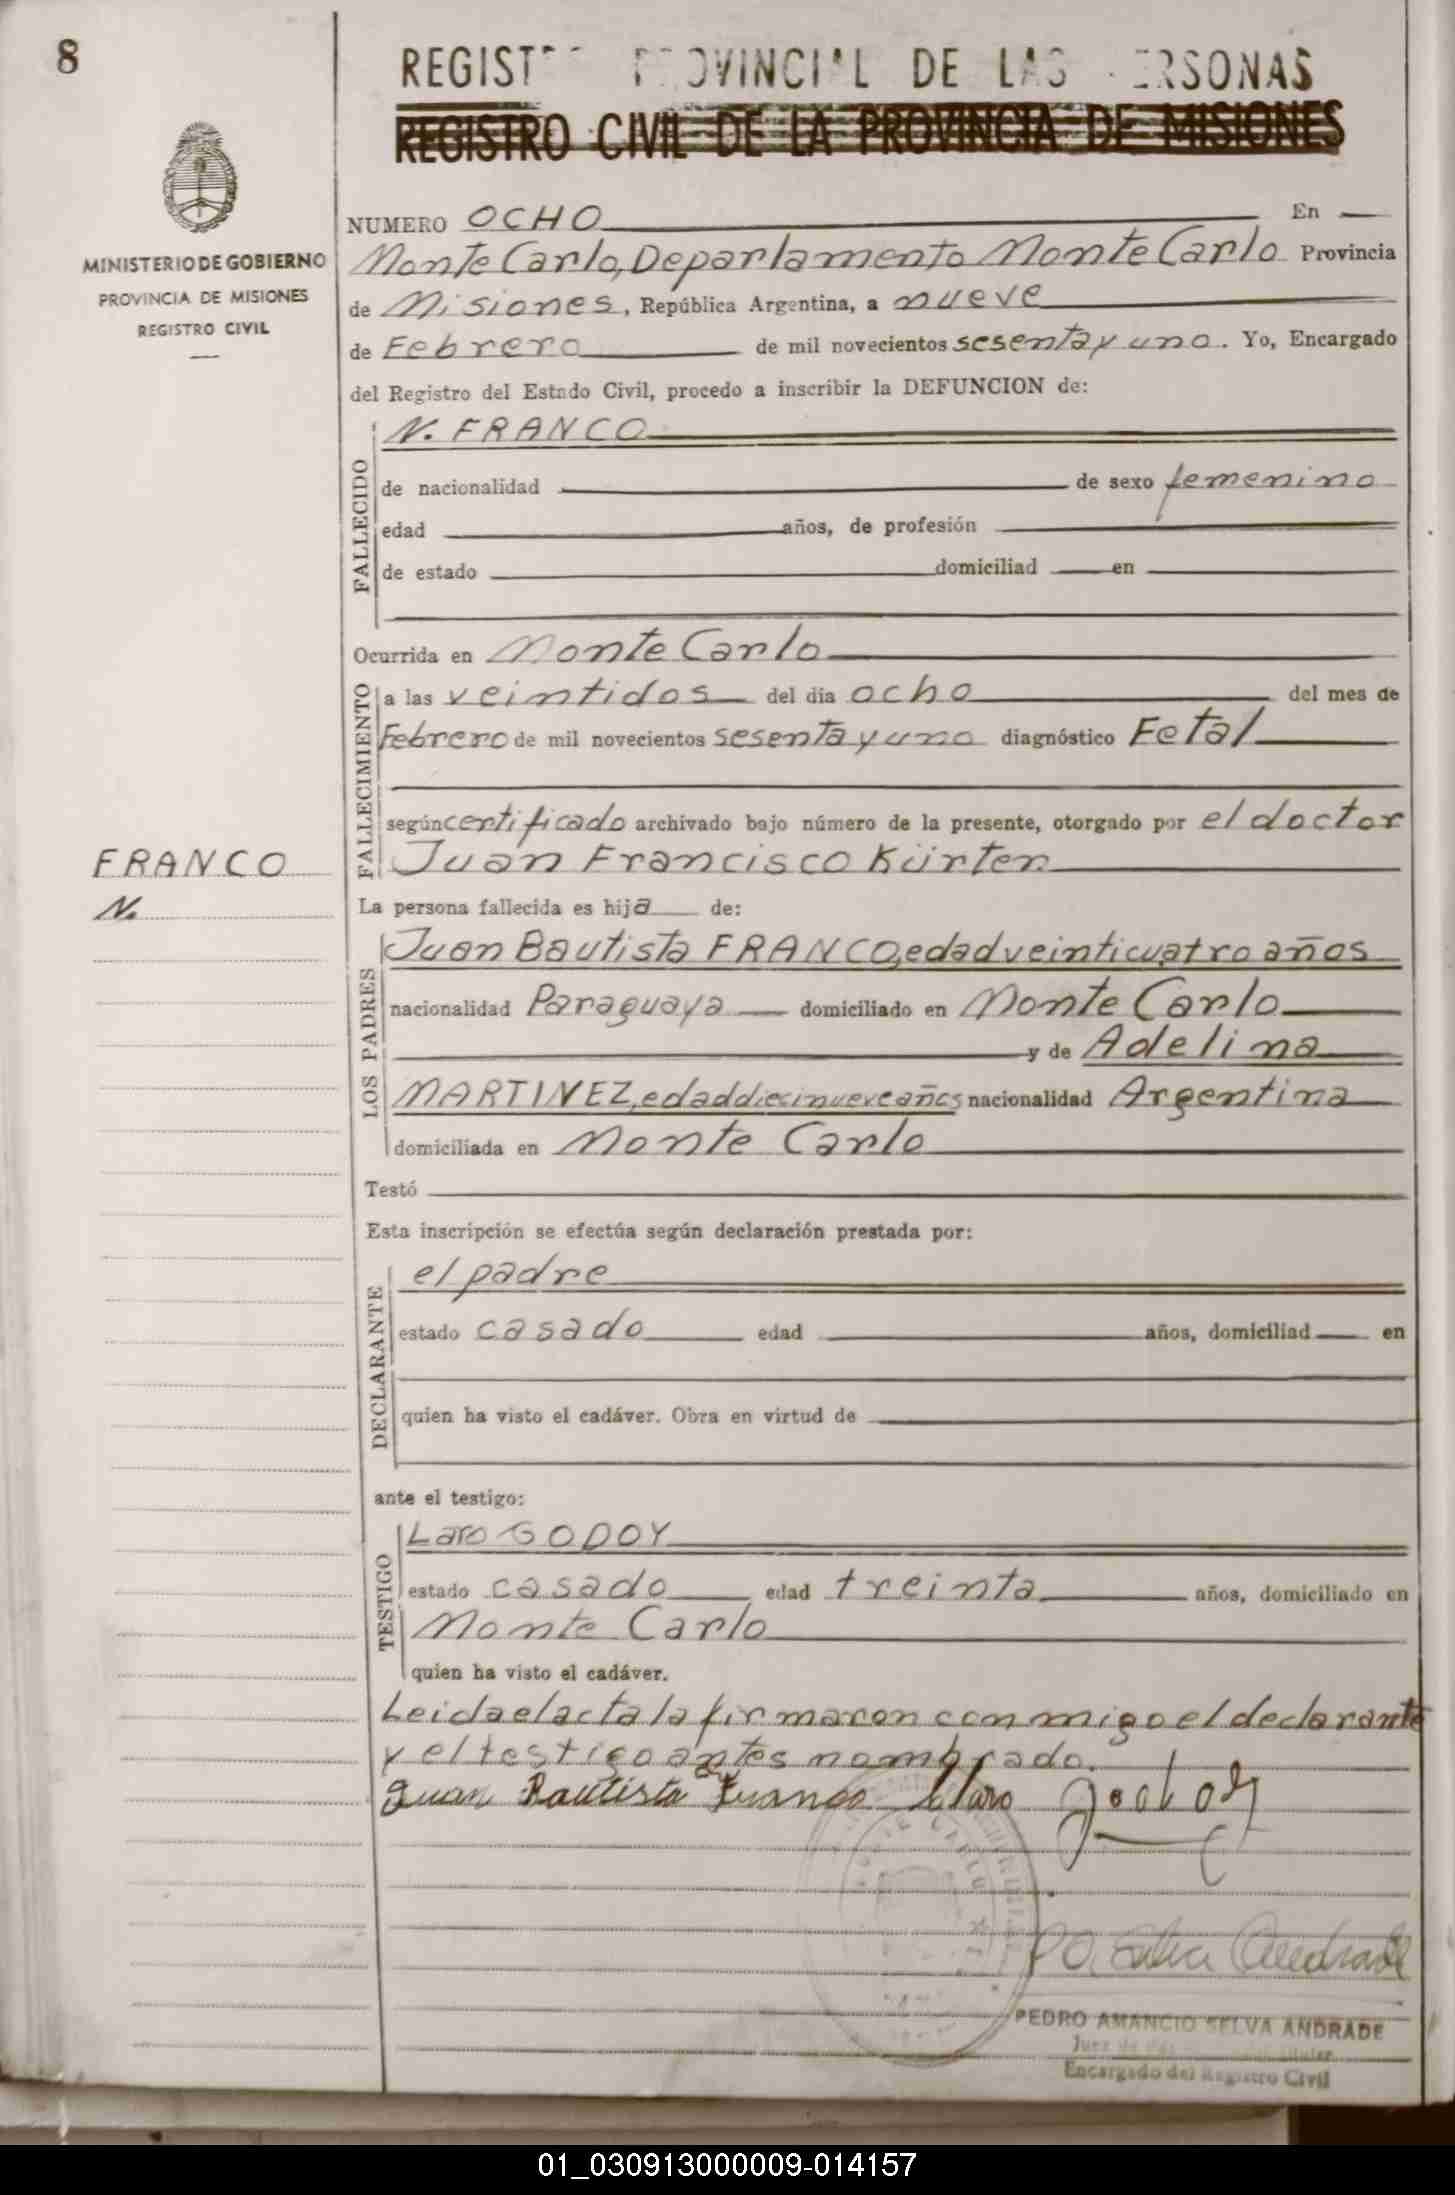 8
REGIST PROVINCIAL DE LAS PERSONAS
REGISTRO CIVIL DE LA PROVINCIA DE MISIONES
MINISTERIO DE GOBIERNO
PROVINCIA DE MISIONES
REGISTRO CIVIL
NUMERO OCHO En
Monte Carlo, Departamento Monte Carlo Provincia
de Misiones, República Argentina, a nueve
de Febrero de mil novecientos sesenta y uno. Yo, Encargado
del Registro del Estado Civil, procedo a inscribir la DEFUNCION de:
FALLECIDO
N. FRANCO
de nacionalidad de sexo femenino
edad años, de profesión
de estado domiciliad en
Ocurrida en Monte Carlo
FALLECIMIENTO
a las veintidos del día ocho del mes de
Febrero de mil novecientos sesenta y uno diagnóstico Fetal
según certificado archivado bajo número de la presente, otorgado por el doctor
Juan Francisco Kürten
FRANCO
N.
La persona fallecida es hija de:
LOS PADRES
Juan Bautista FRANCO, edad veinticuatro años
nacionalidad Paraguaya domiciliado en Monte Carlo
y de Adelina
MARTINEZ, edad diecinueve años nacionalidad Argentina
domiciliada en Monte Carlo
Testó
Esta inscripción se efectúa según declaración prestada por:
DECLARANTE
el padre
estado casado edad años, domiciliad en
quien ha visto el cadáver. Obra en virtud de
ante el testigo:
TESTIGO
Laro GODOY
estado casado edad treinta años, domiciliado en
Monte Carlo
quien ha visto el cadáver.
Leida el acta la firmaron conmigo el declarante
y el testigo antes nombrado.
Juan Bautista Franco Claro
PEDRO AMANCIO SELVA ANDRADE
Encargado del Registro Civil
01_030913000009-014157